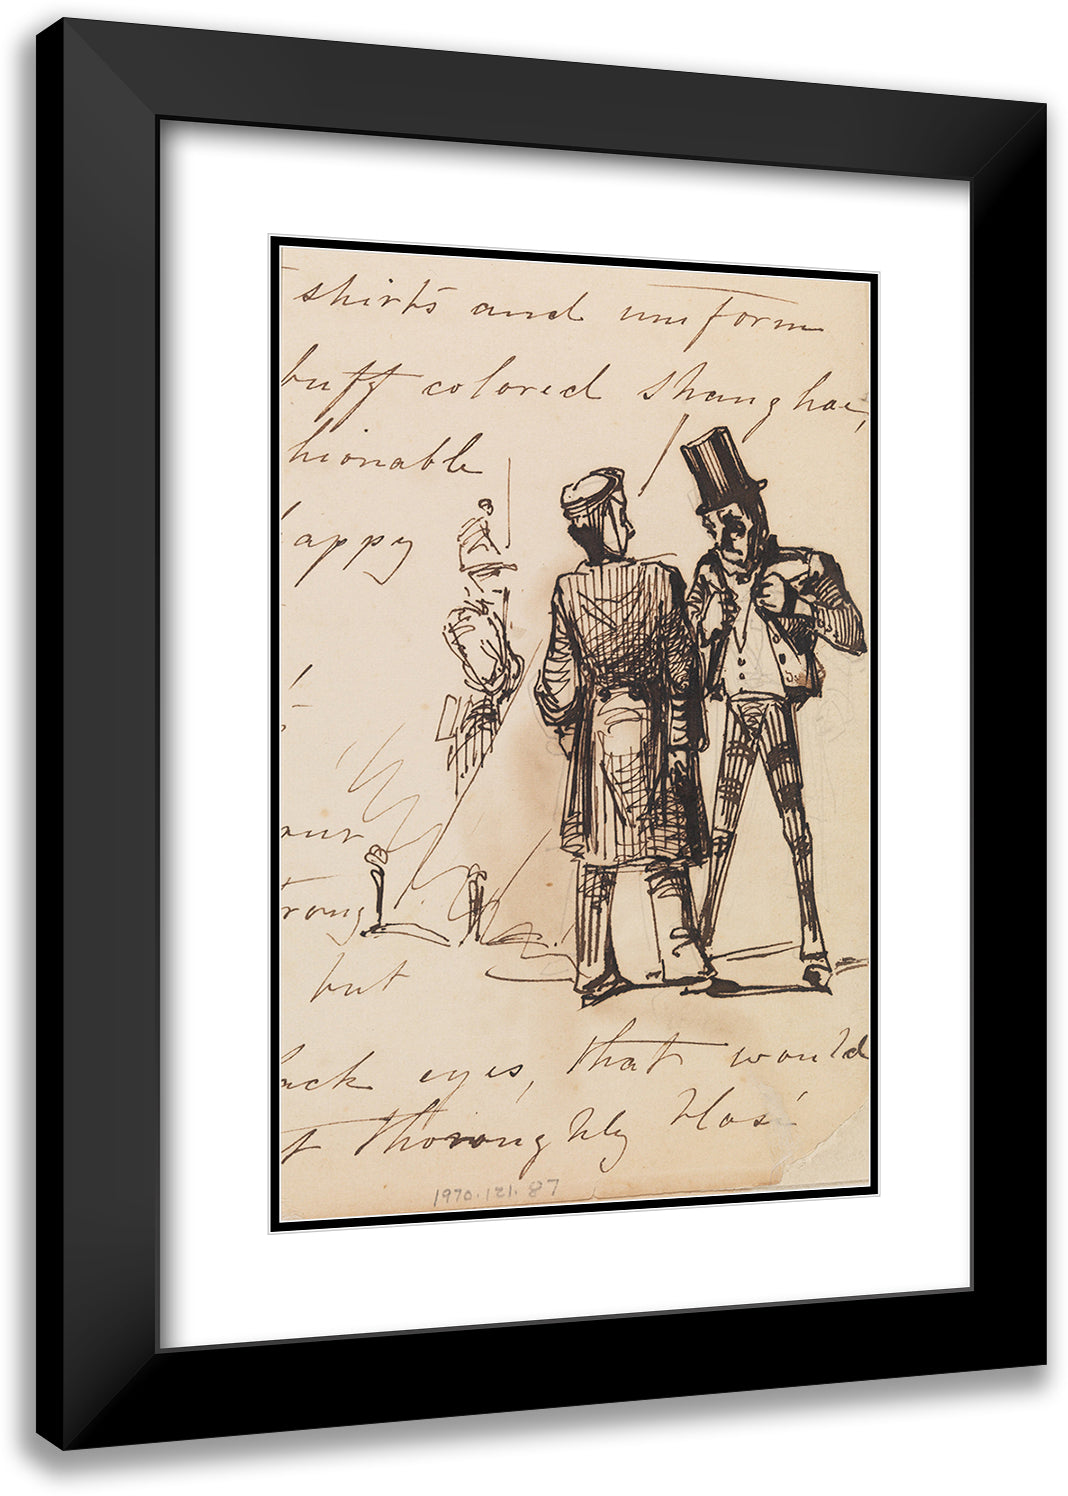 shirts and uniform
buff colored shanghae,
hionable
happy
our
rong
but
ack eyes, that would
t thoroughly
1970.121.87